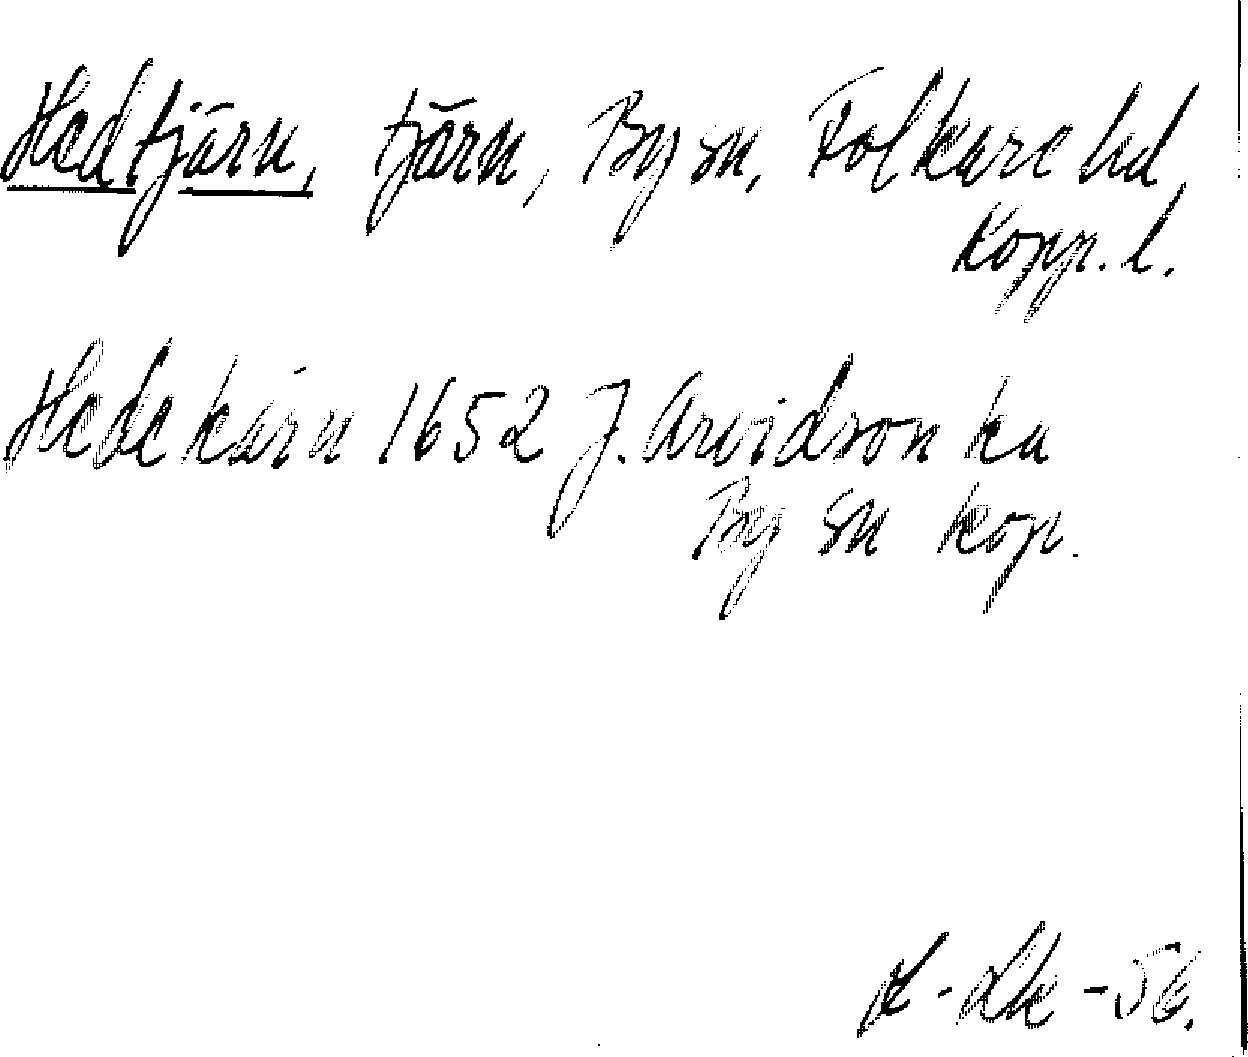 Hedtjärn, tjärn, By sn, Folkare hd,
Kopp. l.
Hedekärn 1652 J. Arvidson ka
By sn kop.
-56.